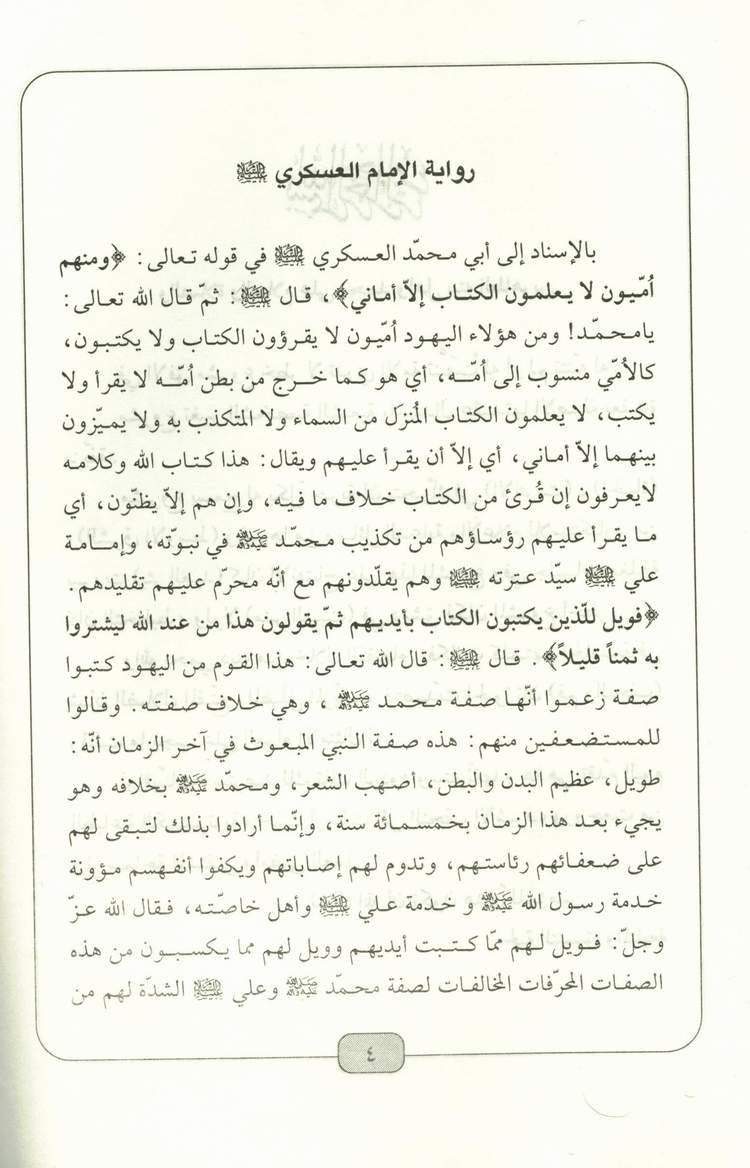 رواية الإمام العسكري عليه السلام
بالإسناد إلى أبي محمّد العسكري عليه السلام في قوله تعالى: ﴿ومنهم
أُمّيون لا يعلمون الكتاب إلاّ أماني﴾، قال عليه السلام: ثمّ قال الله تعالى:
يامحمّد! ومن هؤلاء اليهود أُمّيون لا يقرؤون الكتاب ولا يكتبون،
كالأمّي منسوب إلى أُمّه، أي هو كما خرج من بطن أُمّه لا يقرأ ولا
يكتب، لا يعلمون الكتاب المُنزَل من السماء ولا المتكذب به ولا يميّزون
بينهما إلاّ أماني، أي إلاّ أن يقرأ عليهم ويقال: هذا كتاب الله وكلامه
لايعرفون إن قُرئ من الكتاب خلاف ما فيه، وإن هم إلاّ يظنّون، أي
ما يقرأ عليهم رؤساؤهم من تكذيب محمّد ﷺ في نبوّته، وإمامة
علي عليه السلام سيّد عترته عليه السلام وهم يقلّدونهم مع أنّه محرّم عليهم تقليدهم.
﴿فويل للّذين يكتبون الكتاب بأيديهم ثمّ يقولون هذا من عند الله ليشتروا
به ثمناً قليلاً﴾. قال عليه السلام: قال الله تعالى: هذا القوم من اليهود كتبوا
صفة زعموا أنّها صفة محمد ﷺ، وهي خلاف صفته. وقالوا
للمستضعفين منهم: هذه صفة النبي المبعوث في آخر الزمان أنّه:
طويل، عظيم البدن والبطن، أصهب الشعر، ومحمّد ﷺ بخلافه وهو
يجيء بعد هذا الزمان بخمسمائة سنة، وإنّما أرادوا بذلك لتبقى لهم
على ضعفائهم رئاستهم، وتدوم لهم إصاباتهم ويكفوا أنفهسم مؤونة
خدمة رسول الله ﷺ و خدمة علي عليه السلام وأهل خاصّته، فقال الله عزّ
وجلّ: فويل لهم ممّا كتبت أيديهم وويل لهم مما يكسبون من هذه
الصفات المحرّفات المخالفات لصفة محمّد ﷺ وعلي عليه السلام الشدّة لهم من
٤